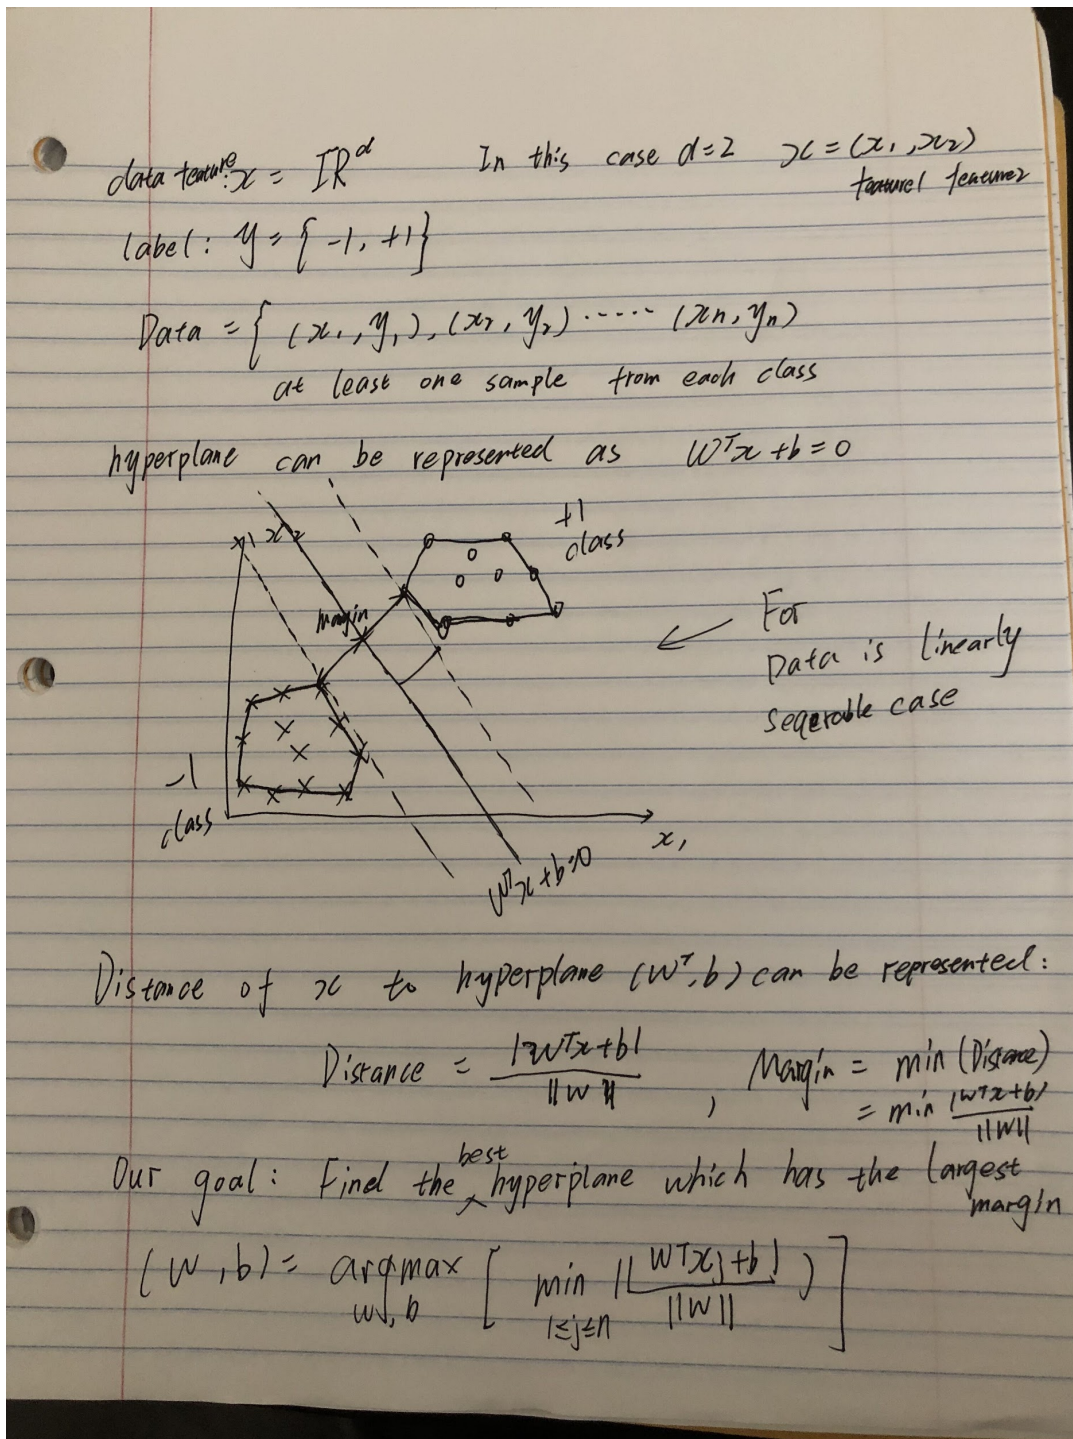 data feature: x = ℝᵈ   In this case d=2   x = (x₁, x₂)
feature1 feature2
label: y = { -1, +1}
Data = { (x₁, y₁), (x₂, y₂) ····· (xn, yn)
at least one sample from each class
hyperplane can be represented as   Wᵀx + b = 0
x₂
+1
class
margin
For
Data is linearly
seqerable case
-1
class
x₁
Wᵀx + b = 0
Distance of x to hyperplane (Wᵀ, b) can be represented:
Distance = |wᵀx+b| / ||W|| , Margin = min (Distance)
= min |wᵀx+b| / ||W||
Our goal: Find the best hyperplane which has the largest
margin
(w, b) = argmax w, b [ min 1≤j≤n |( Wᵀxj + b| / ||W|| ) ]